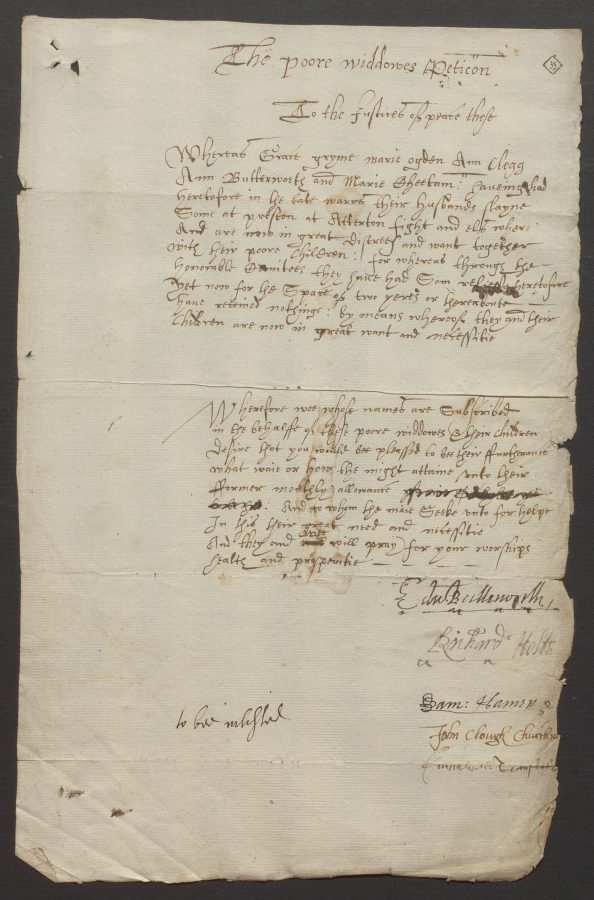 The poore widdowes Peticon
To the Justices of peace these
Whereas Grace gryme marie ogden Ann Clegg
Ann Butterworth and Marie Cheetam: haueing had
heretofore in the late warrs their Husbands slayne
Some at preston at Atterton fight and els where
And are now in great distress and want together
with their poore Children: for whereas through the
honorable Comitees they haue had Som releefe heretofore
yet now for the Space of two yeres or thereaboute
haue receiued nothinge: by means whereof they and their
Children are now in great want and necessitie
Wherefore wee whose names are Subscribed
in the behalfe of these poore widdowes & their Children
desire that you would bee pleased to be their furtherance
what waie or how the might attaine unto their
former monthly allowance
And to whom the maie Seeke unto for helpe
In this their great need and necessitie
And they and wee will pray for your worships
health and prosperitie
Edw Butterworth
Richard Holte
Sam: Hamer
John Clough
to bee